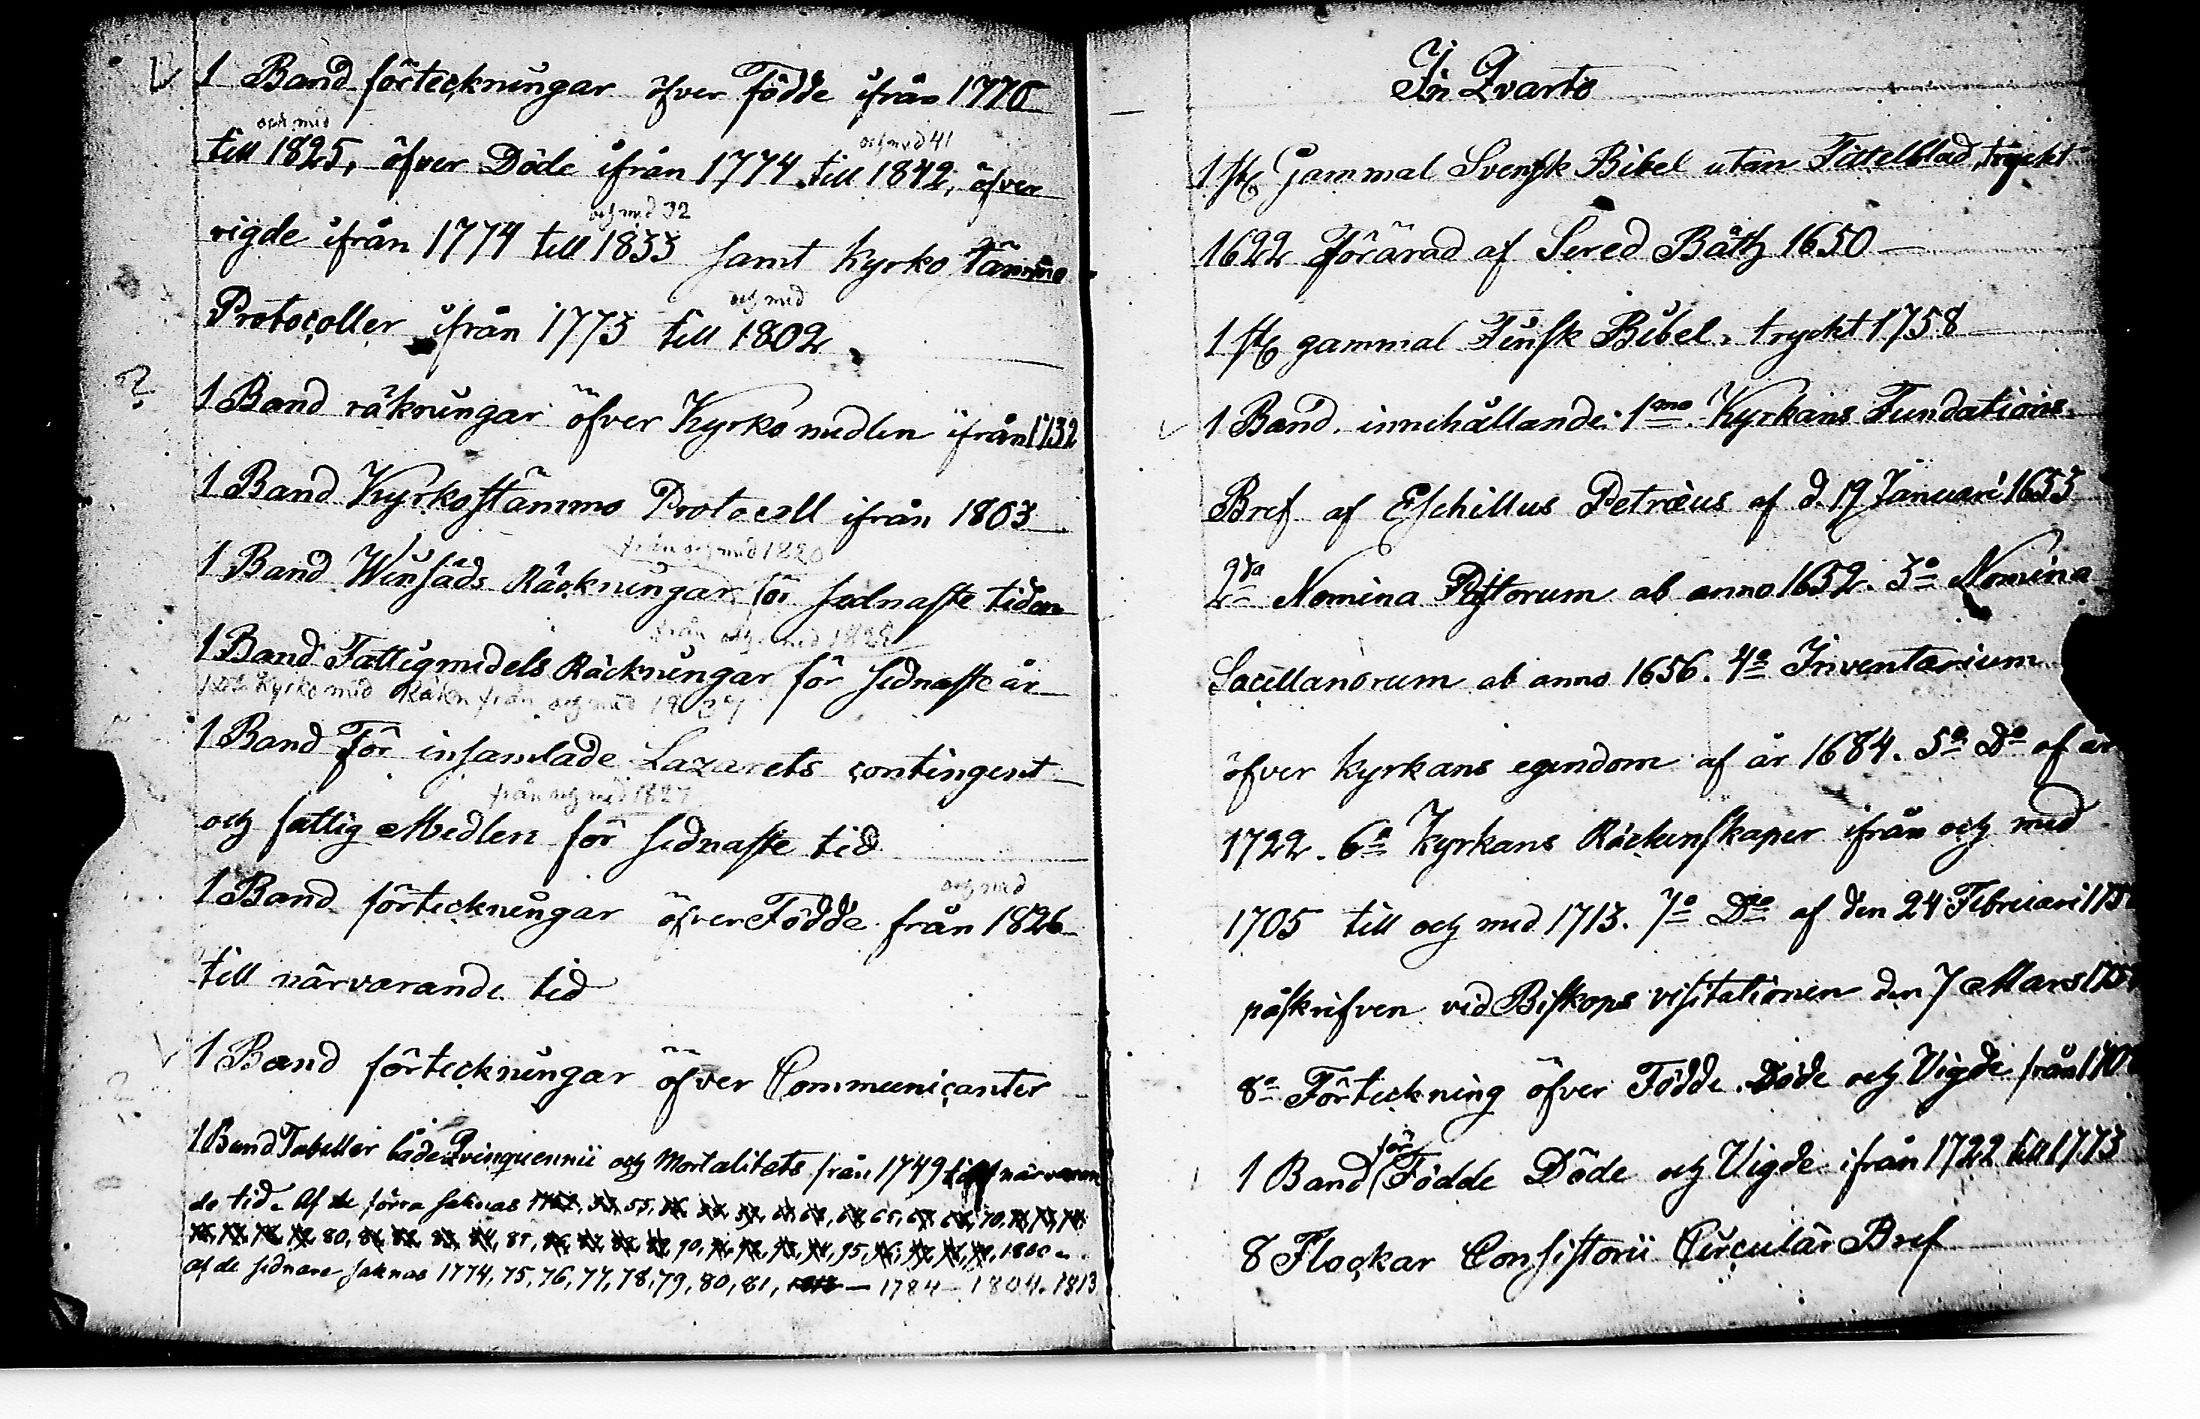 1 Band förteckningar öfver Födde ifrån 1770
och med
till 1825, öfver Döde ifrån 1774 till 1842, öfver
och med 41
vigde ifrån 1774 till 1833 samt Kyrko Stämmo
och med 32
Protocoller ifrån 1773 till 1802
och med
1 Band räkningar öfver Kyrko medlen ifrån 1732
1 Band Kyrkostämmo Protocoll ifrån 1803
från och med 1820
1 Band Winsäds Räckningar för sednaste tiden
från och med 1828
1 Band Fattigmedels Räckningar för sednaste år
Kyrko med Räkn från och med 1837
1 Band För insamlade Lazarets contingent
från och med 1827
och fattig Medlen för sednaste tid
och med
1 Band förteckningar öfver Födde från 1826
till närvarande tid
1 Band förteckningar öfver Communicanter
1 Band Tabeller både Qvinquennii och Mortalitets från 1749 till närvaran
de tid. Af de förra saknas 55, 65, 70,
80, 85, 90, 95, 1800
af de sednare saknas 1774, 75, 76, 77, 78, 79, 80, 81, — 1784 — 1804. 1813
In Qvarto
1 st. Gammal Svensk Bibel utan Tittelblad, tryckt
1622 Förärad af Sered Bååth 1650
1 st. gammal Finsk Bibel, tryckt 1758
1 Band innehållande: 1mo Kyrkans Fundations
Bref af Eschillus Petræus af d. 19 Januari 1653
2do Nomina Pastorum ab anno 1652. 3o Nomina
Sacellanorum ab anno 1656. 4o Inventarium
öfver Kyrkans egendom af år 1684. 5o Do af år
1722. 6o Kyrkans Räckenskaper ifrån och med
1705 till och med 1713. 7o Do af den 24 Februari
påskrifven vid Biskops visitationen den 7 Mars
8o Förteckning öfver Födde Döde och Vigde från
1 Band för Födde Döde och Vigde ifrån 1722 till 1773
8 Flockar Consistorii Circulär Bref